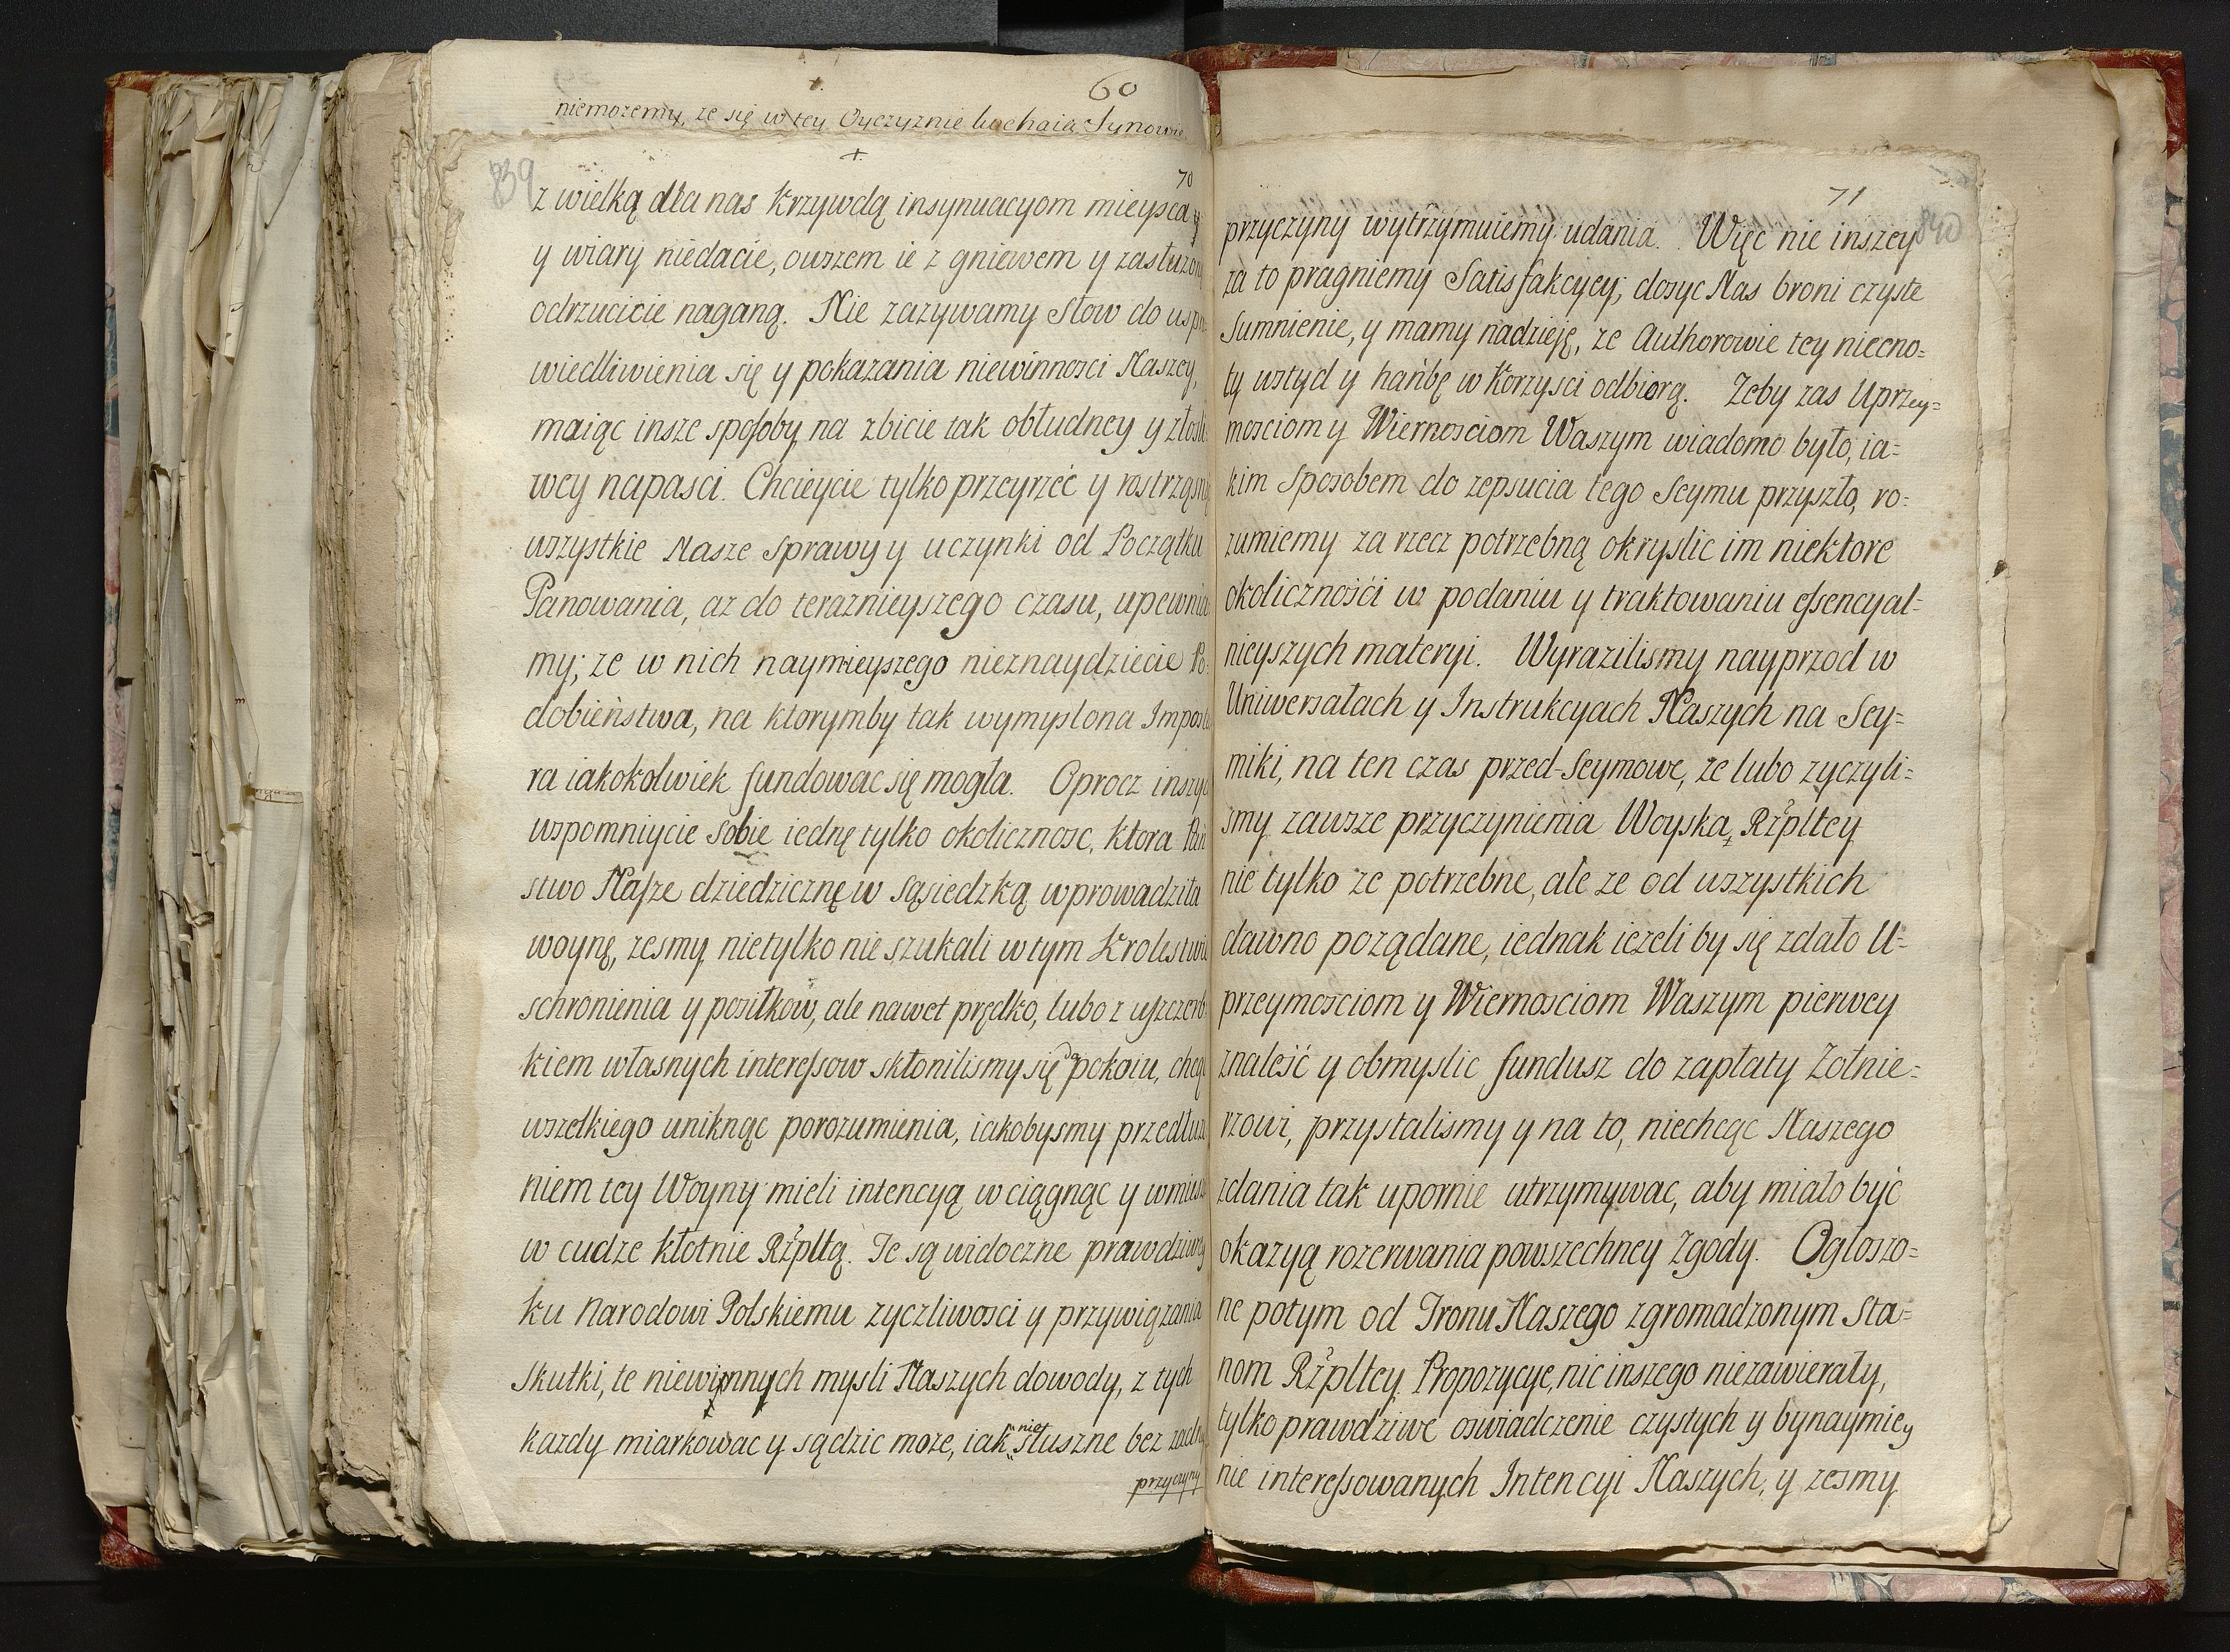 60
niemozemy, ze się w tey Oyczyznie kochaią Synowie
839
70
z wielką dla nas Krzywdą insynuacyom mieysca y
y wiary niedacie, owszem ie z gniewem y zasłuzoną
odrzucicie naganą. Nie zazywamy Słow do uspra-
wiedliwienia się y pokazania niewinnosci Naszey,
maiąc insze sposoby na zbicie tak obłudney y złosli
wey napasci. Chcieycie tylko przeyrzeć y rostrząsnąć
wszystkie Nasze Sprawy y uczynki od Początku
Panowania, az do teraznieyszego czasu, upewnia
my; ze w nich naymnieyszego nieznaydziecie Po-
dobieństwa, na ktorymby tak wymyslona Impostu
ra iakokolwiek fundowac się mogła. Oprocz inszych
wspomniycie sobie iednę tylko okolicznosc, ktora Pań
stwo Nasze dziedzicznę w sąsiedzką wprowadziła
woynę, zesmy nietylko nie szukali w tym Krolestwie
schronienia y posiłkow, ale nawet prędko, lubo z uszczerb
kiem własnych interessow skłonilismy się do pokoiu, chcąc
wszelkiego uniknąc porozumienia, iakobysmy przedłuze
niem tey Woyny mieli intencyą wciągnąc y wmiesz
w cudze kłotnie Rzpltą. Te są widoczne prawdziwey
ku Narodowi Polskiemu zyczliwosci y przywiązania
Skutki, te niewinnych mysli Naszych dowody, z tych
kazdy miarkowac y sądzic moze, iak nie słuszne bez zadney
przyczyny
71
840
przyczyny wytrzymuiemy udania. Więc nie inszey
za to pragniemy Satisfakcyey; dosyc Nas broni czyste
Sumnienie, y mamy nadzieję, ze Authorowie tey niecno=
ty wstyd y hańbę w Korzysci odbiorą. Zeby zas Uprzey=
mosciom y Wiernosciom Waszym wiadomo było, ia=
kim Sposobem do zepsucia tego Seymu przyszło, ro=
zumiemy za rzecz potrzebną okryslic im niektore
okolicznośći w podaniu y traktowaniu essencyal=
nieyszych materyi. Wyrazilismy nayprzod w
Uniwersałach y Instrukcyach Naszych na Sey=
miki, na ten czas przed-Seymowe, ze lubo zyczyli=
smy zawsze przyczynienia Woyska, Rzpltey
nie tylko ze potrzebne, ale ze od wszystkich
dawno poządane, iednak iezeli by się zdało U=
przeymosciom y Wiernosciom Waszym pierwey
znaleść y obmyslic fundusz do zapłaty Zołnie=
rzowi, przystalismy y na to, niechcąc Naszego
zdania tak upornie utrzymywac, aby miało być
okazyą rozerwania powszechney Zgody. Ogłoszo=
ne potym od Tronu Naszego zgromadzonym Sta=
nom Rzpltey Propozycye, nic inszego niezawierały,
tylko prawdziwe oswiadczenie czystych y bynaymiey
nie interessowanych Intencyi Naszych, y zesmy